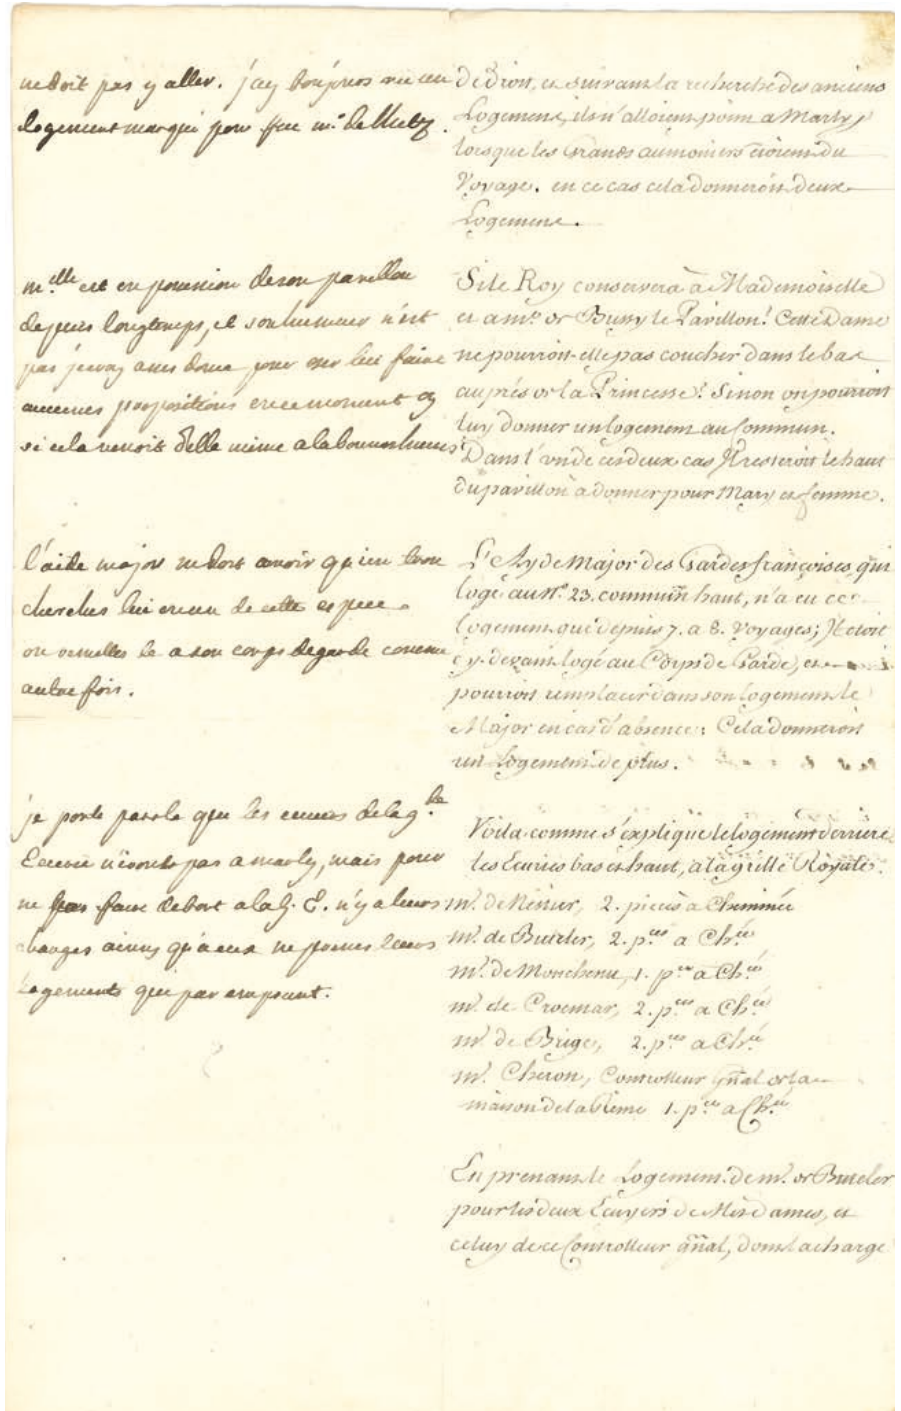 ne doit pas y aller. j'ay toujours vu un
logement marqué pour feu mr. de Metz.
mlle est en possession de son pavillon
depuis longtemps, et son humeur n'est
pas assez douce pour oser lui faire
aucunes propositions en ce moment cy
si cela venoit d'elle même a la bonne heure
l'aide major ne doit avoir qu'un
cherchés lui en un de cette espece.
ou remettes le a son corps de garde comme
autre fois.
je parle que les de la gde
Ecurie n'iront pas a marly, mais pour
ne pas faire de tort a la g. E. n'y a leurs
charges ne prenes leurs
Logements que par emprunt.
de droit, et suivant la recherche des anciens
Logemens, ils n'alloient point a Marly,
lorsque les Grands aumoniers étoient du
Voyage. en ce cas cela donneroit deux
Logemens.
Si le Roy conservera à Mademoiselle
et a me. de Bussy le Pavillon? Cette Dame
ne pourroit-elle pas coucher dans le bas
auprés de la Princesse? Sinon on pourroit
luy donner un logement au Commun.
Dans l'un de ces deux cas Il resteroit le haut
du pavillon a donner pour Mary et femme.
L'Ayde Major des Gardes françoises, qui
loge au No. 23. commun haut, n'a eu ce
logement que depuis 7. a 8. Voyages; Il etoit
cy-devant logé au Corps de Garde, et
pourroit remplacer dans son logement le
Major en cas d'absence: Cela donneroit
un Logement de plus.
Voila comme s'explique le logement derriere
les Ecuries bas et haut, a la grille Royale.
mr. de Nestier, 2. pieces à Cheminée
mr. de Butler, 2. pces a Chée
mr. de Monchenu, 1. pce a Chée
mr. de Croemar, 2. pces a Chée
mr. de Brige, 2. pces a Chée
mr. Cheron, Controlleur gñal de la
maison de la Reine 1. pce a Chée
En prenant le Logement de mr. de Butler
pour les deux Ecuyers de Mesdames, et
celuy de ce Controlleur gñal, dont la charge